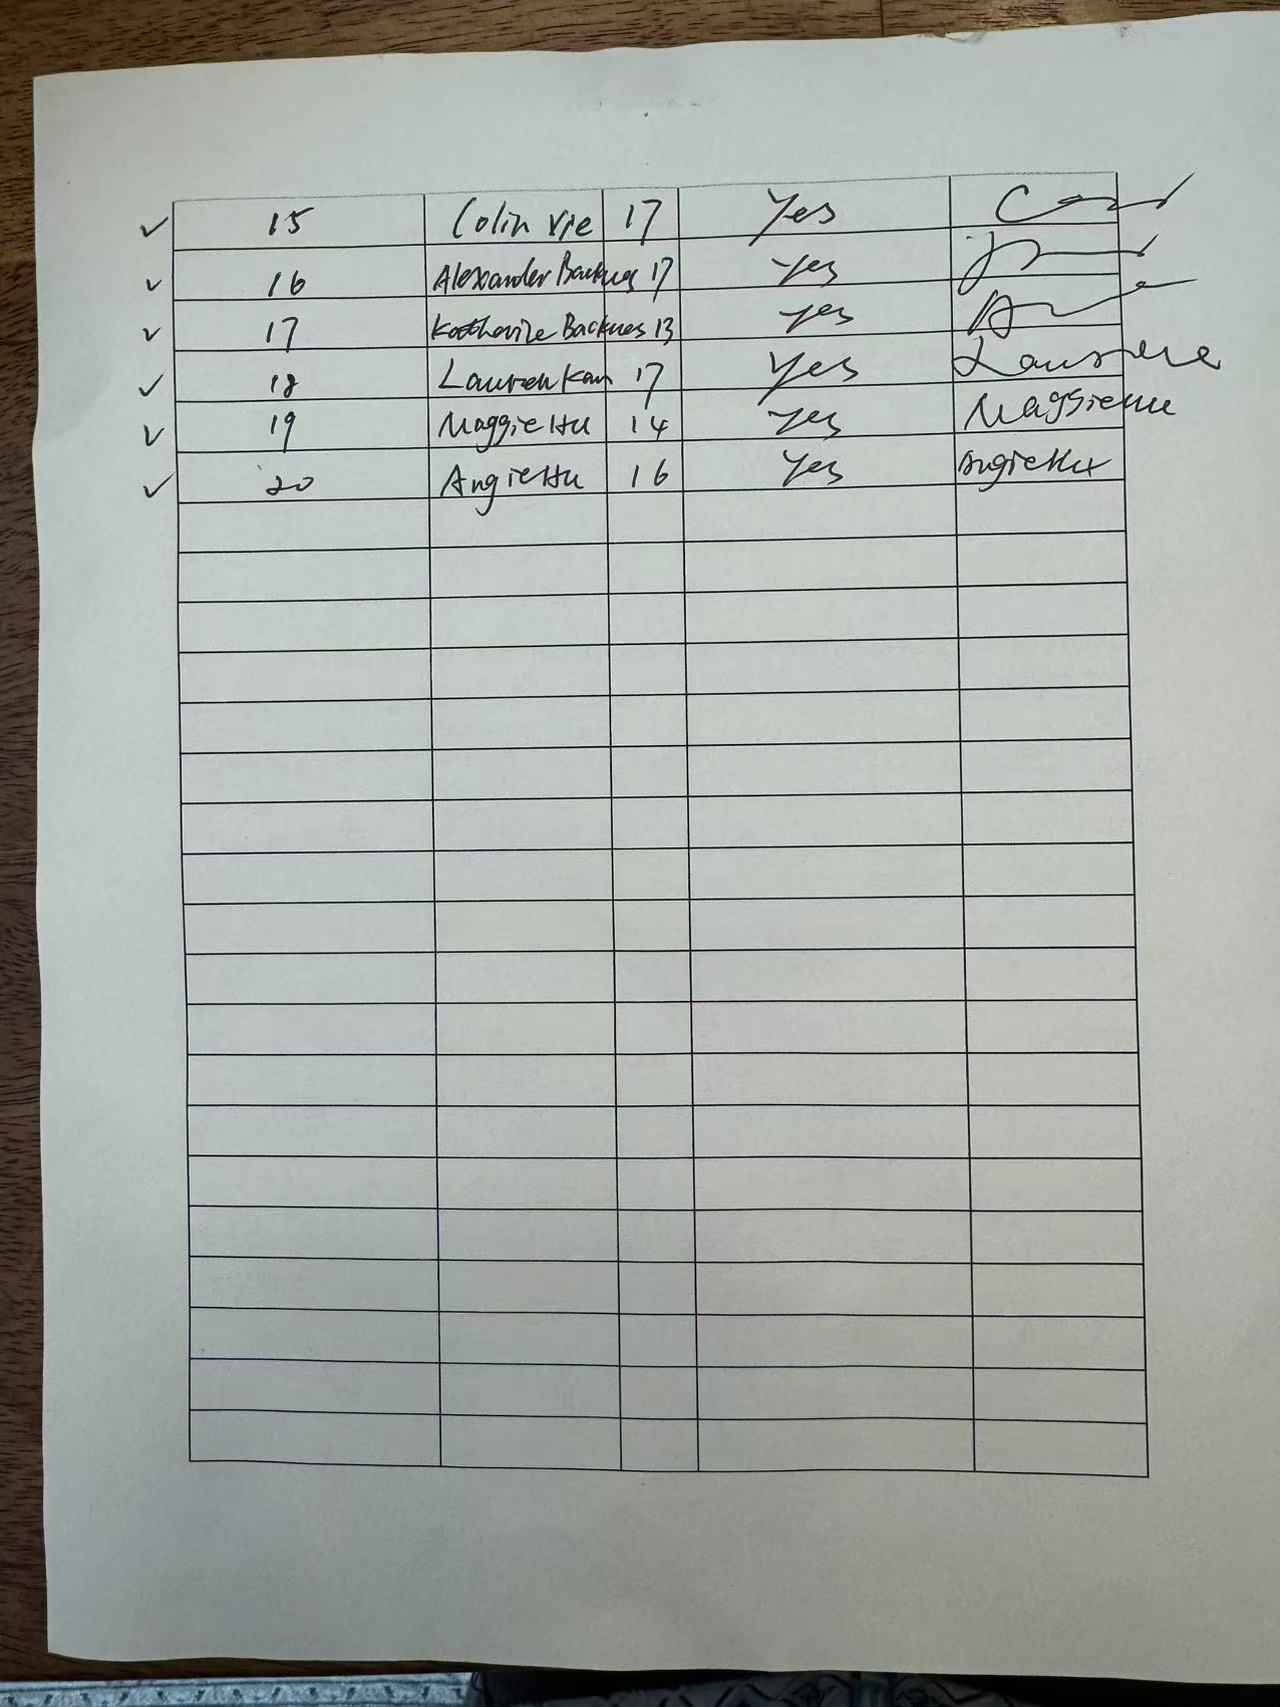 ✓ 15 Colin Xie 17 Yes
✓ 16 Alexander Backues 17 Yes
✓ 17 Katherine Backues 13 Yes
✓ 18 Lauren 17 Yes
✓ 19 Maggie Hu 14 Yes Maggie Hu
✓ 20 Angie Hu 16 Yes Angie Hu